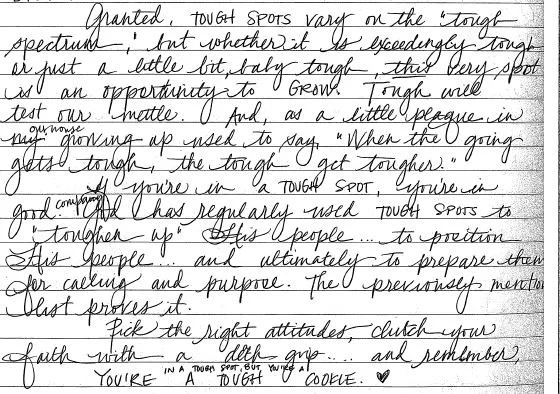 Granted, TOUGH SPOTS vary on the "tough
spectrum," but whether it is exceedingly tough
or just a little bit, baby tough, this very spot
is an opportunity to GROW. Tough will
test our mettle. And, as a little plaque in
our house growing up used to say, "When the going
gets tough, the tough get tougher."
If you're in a TOUGH SPOT, you're in
good company. God has regularly used TOUGH SPOTS to
"toughen up" His people... to position
His people... and ultimately to prepare them
for calling and purpose. The previously mention
list proves it.
Pick the right attitudes, clutch your
faith with a deth grip.... and remember,
IN A TOUGH SPOT, BUT, YOU'RE A
YOU'RE A TOUGH COOKIE. ♥